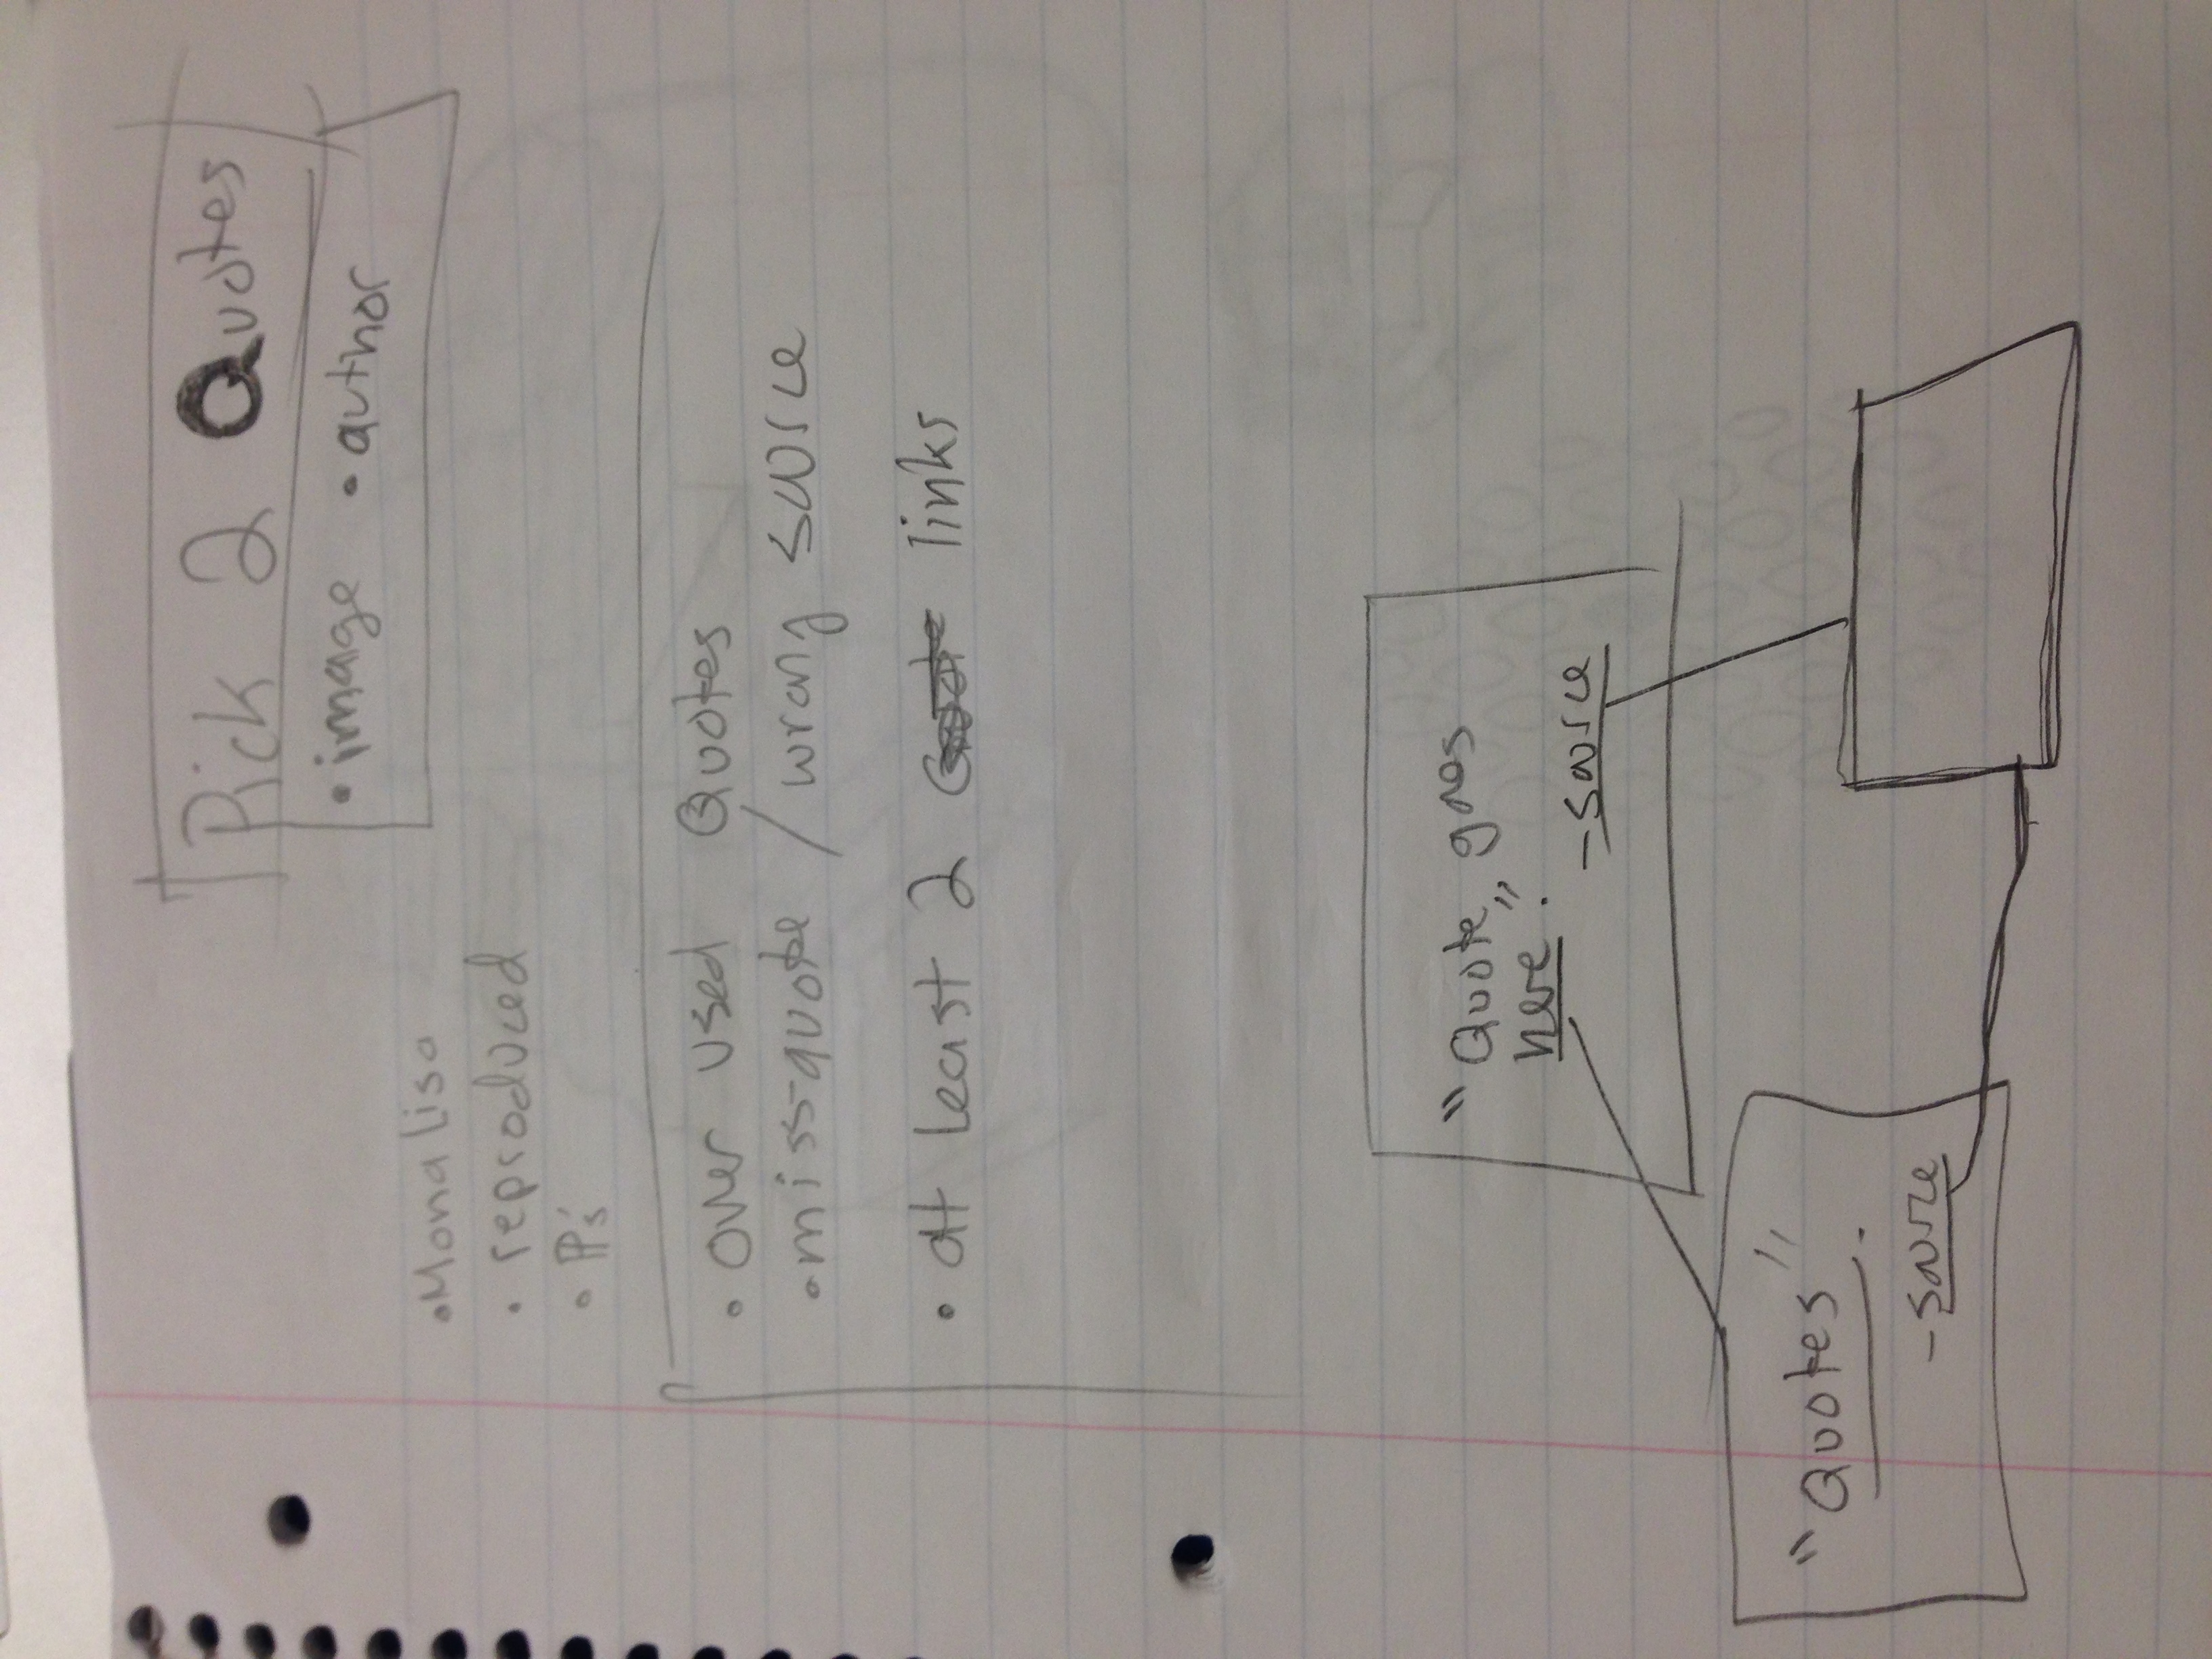 Pick 2 Quotes
• image • author
• Mona Lisa
• reproduced
• PP's
• over used Quotes
• miss-quote / wrong source
• at least 2 links
"Quote goes
here".
- source
"Quotes".
- source